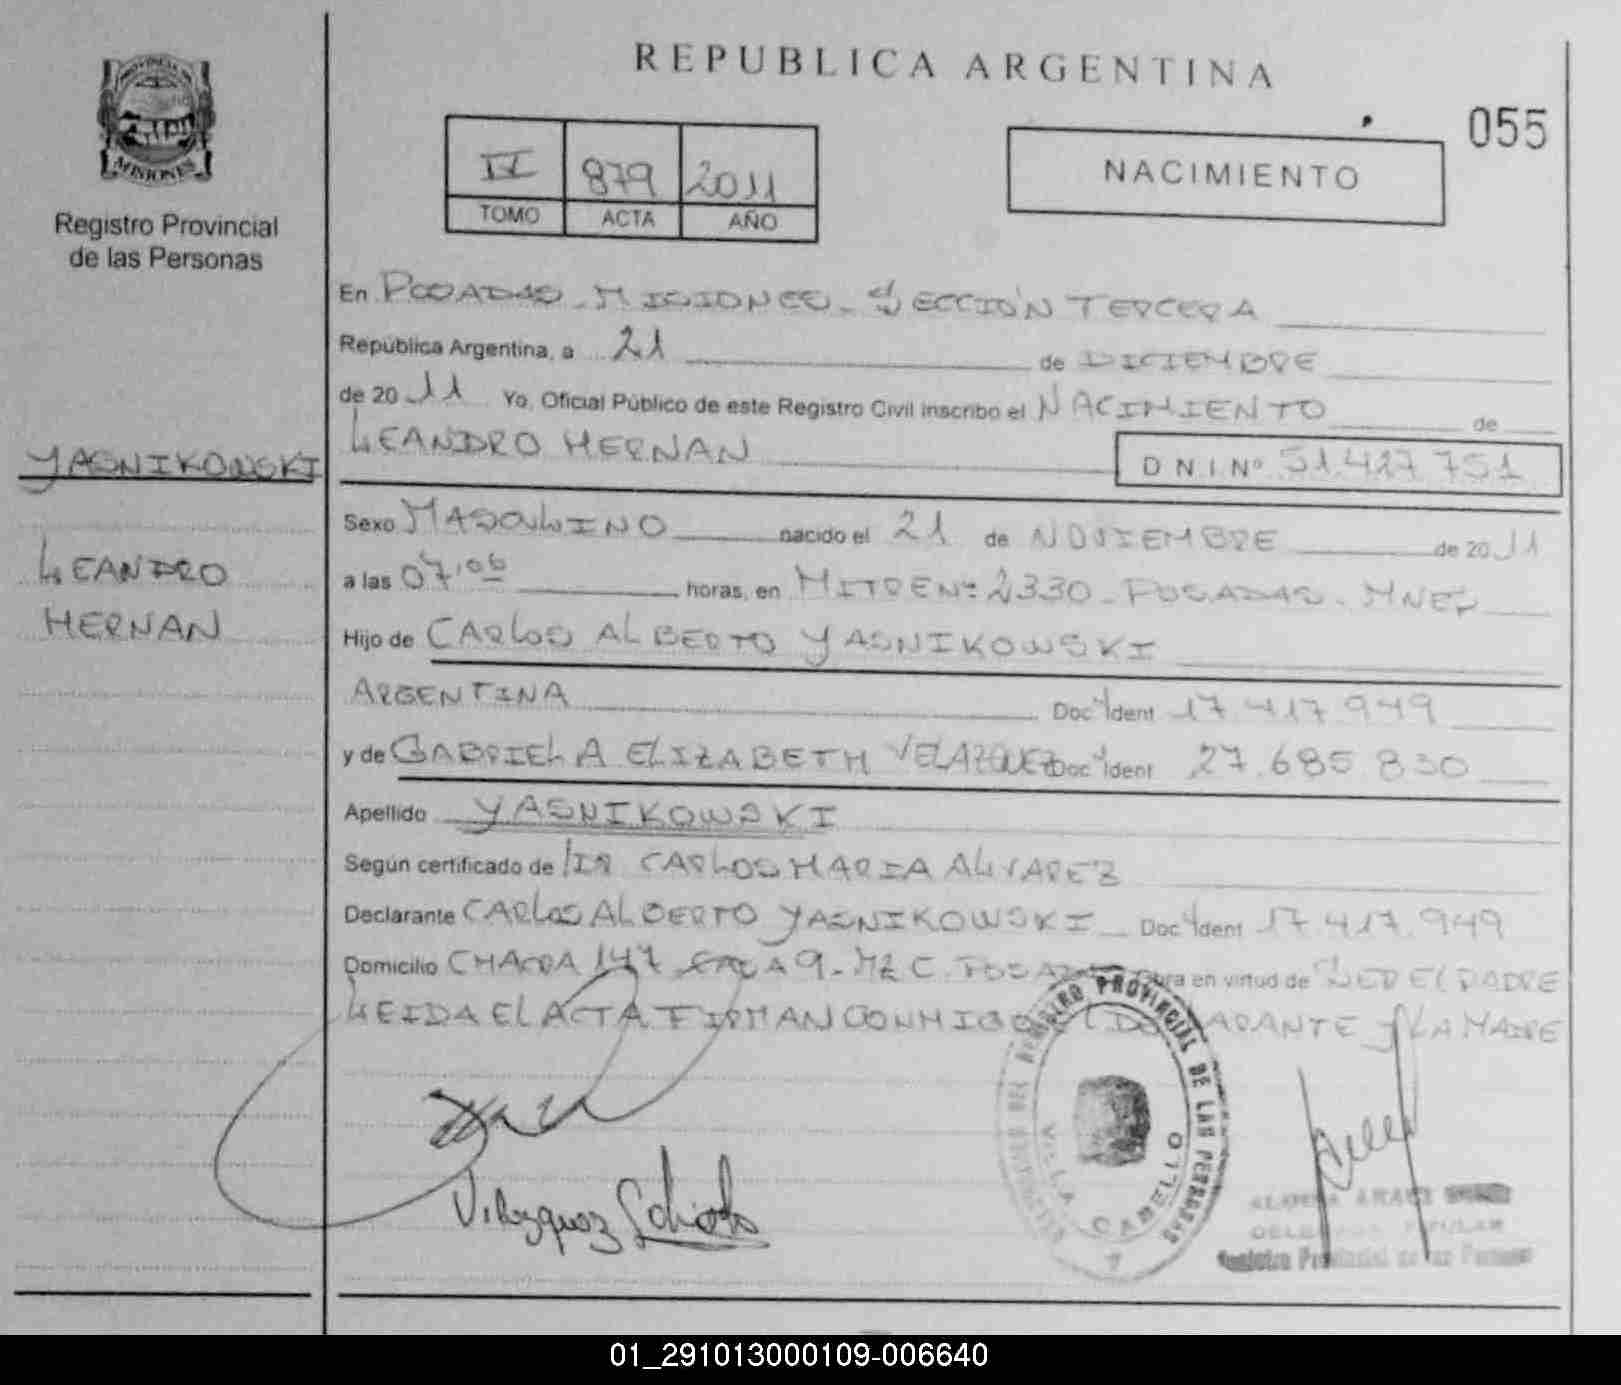 REPUBLICA ARGENTINA
055
PROVINCIA DE
MISIONES
Registro Provincial
de las Personas
II 879 2011
TOMO ACTA AÑO
NACIMIENTO
En POSADAS - MISIONES - SECCIÓN TERCERA
República Argentina, a 21 de DICIEMBRE
de 20 11 Yo, Oficial Público de este Registro Civil inscribo el NACIMIENTO de
LEANDRO HERNAN D N.I Nº 51.417.751
YASNIKOWSKI
LEANDRO
HERNAN
Sexo MASCULINO nacido el 21 de NOVIEMBRE de 20 11
a las 07,06 horas, en MITRE Nº 2330 - POSADAS - MNES
Hijo de CARLOS ALBERTO YASNIKOWSKI
ARGENTINA Doc Ident 17.417.949
y de GABRIELA ELIZABETH VELAZQUEZ Doc Ident 27.685.830
Apellido YASNIKOWSKI
Según certificado de CARLOS MARIA ALVAREZ
Declarante CARLOS ALBERTO YASNIKOWSKI Doc Ident 17.417.949
Domicilio CHACRA 147 CASA 9 - MZ C. Obra en virtud de SER EL PADRE
LEIDA EL ACTA FIRMAN CONMIGO EL DECLARANTE Y LA MADRE
REGISTRO PROVINCIAL DE LAS PERSONAS
VILLA CABELLO
Velazquez
Registro Provincial de las Personas
01_291013000109-006640